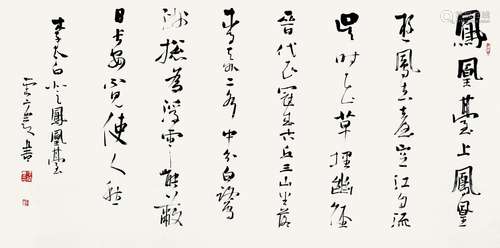 鳳凰臺上鳳凰
遊鳳去臺空江自流
吳時花草埋幽徑
晉代衣冠成古丘三山半落
青天外二水中分白鷺
洲總為浮雲能蔽
日長安不見使人愁
李太白鳳凰臺
書